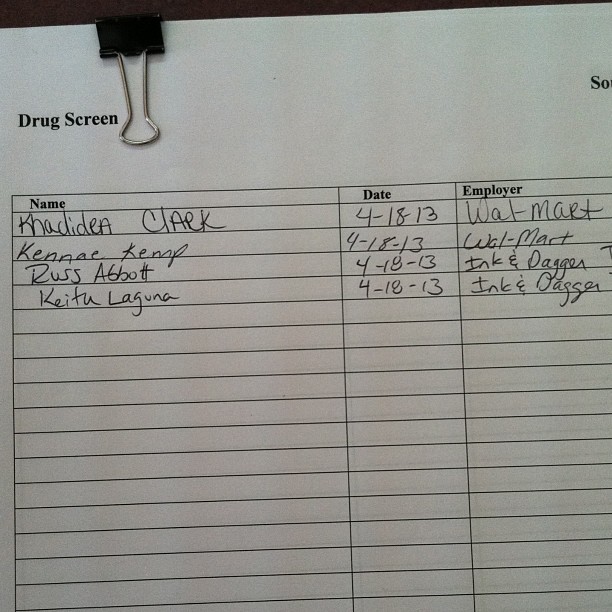 Sou
Drug Screen
Name Date Employer
Khadidea Clark 4-18-13 Wal-Mart
Kennae Kemp 4-18-13 Wal-Mart
Russ Abbott 4-18-13 Ink & Dagger T
Keith Laguna 4-18-13 Ink & Dagger